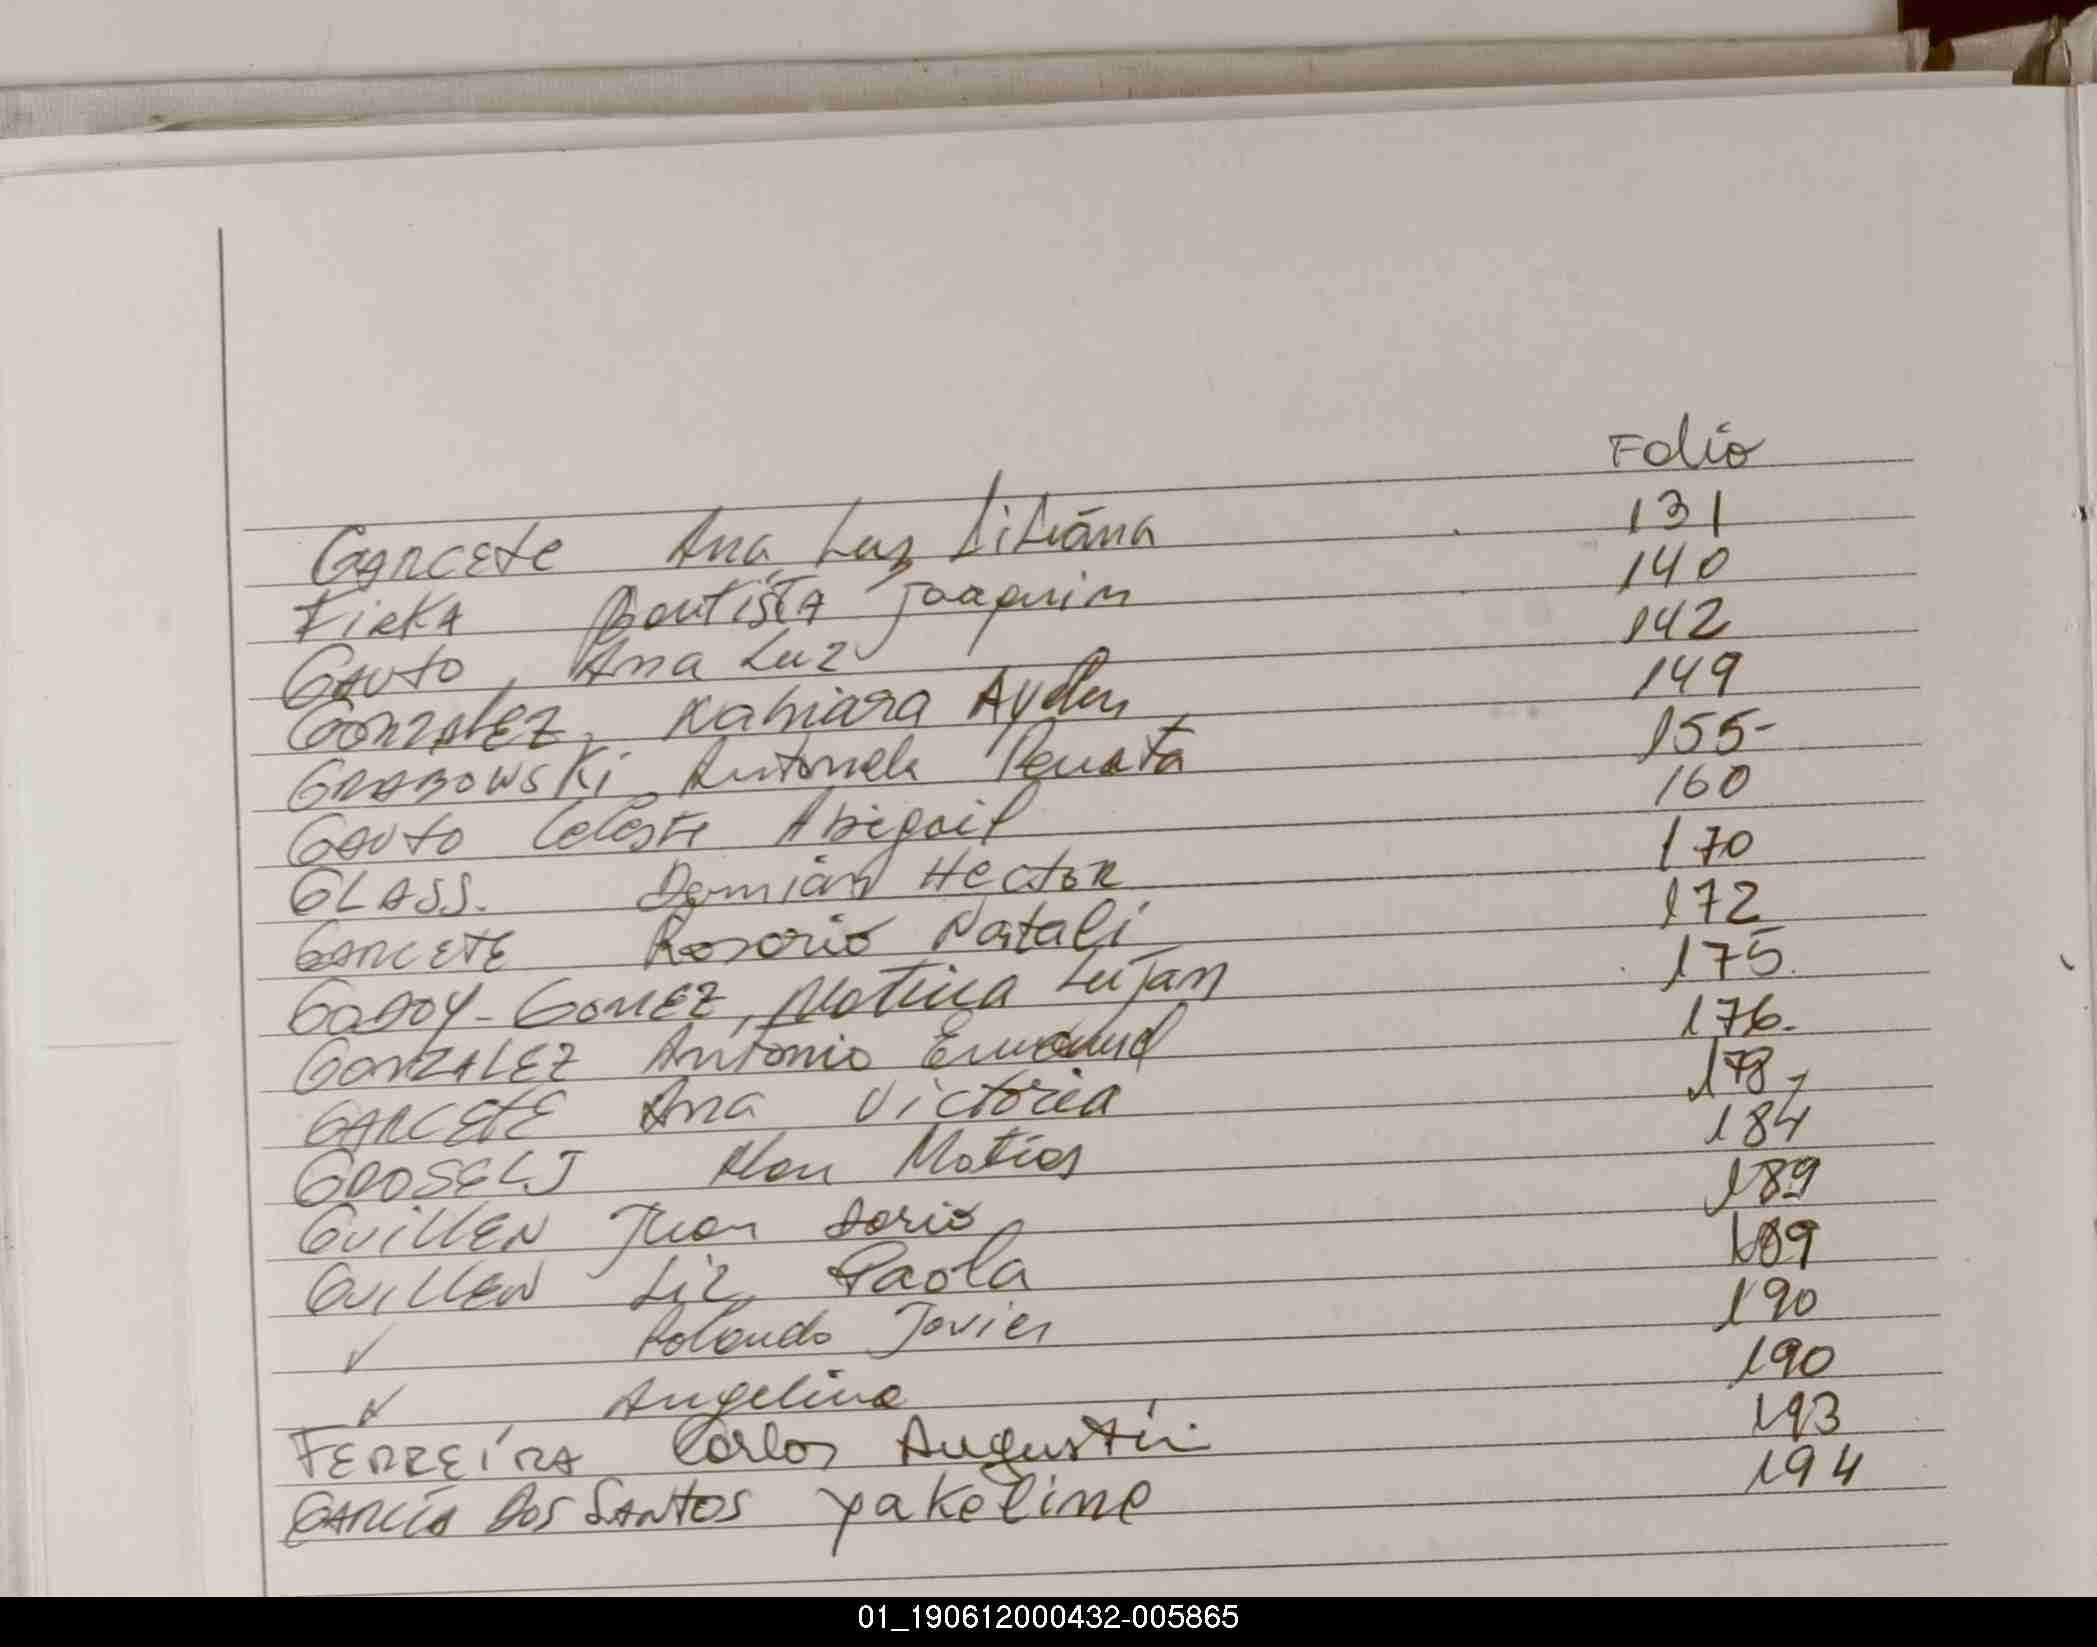 Folio
Garcete Ana Luz Liliana 131
Firka Bautista Joaquin 140
Gauto, Ana Luz 142
Gonzalez, Kahiara Aylen 149
Grabowski Antonela Renata 155-
Gauto Celeste Abigail 160
Glass. Demian Hector 170
Garcete Rosario Natali 172
Godoy-Gomez, Luján 175.
Gonzalez Antonio Emanuel 176.
Garcete Ana Victoria 178-
Groselj Alan Matias 184
Guillen Juan Dario 189
Guillen Liz Paola 189
✓ Rolando Javier 190
✓ Angelina 190
Ferreira Carlos Augustin 193
García Dos Santos Yakeline 194
01_190612000432-005865